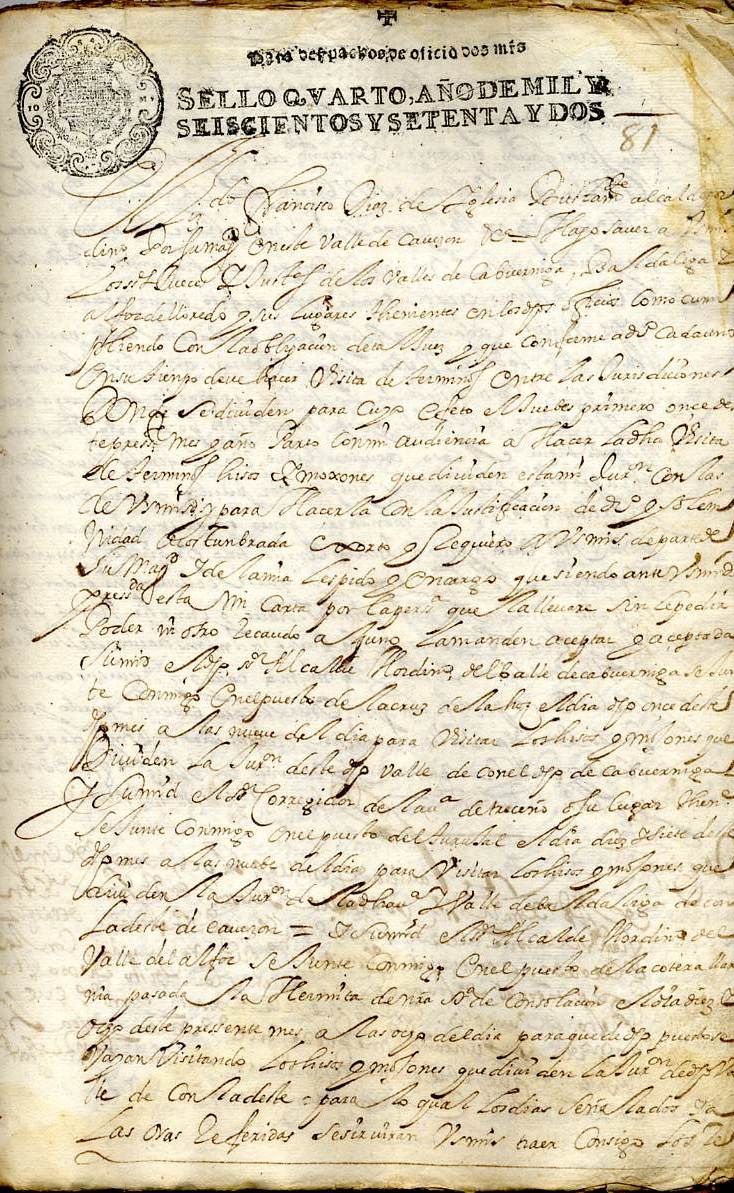 Para despachos de oficio dos mrs
SELLO QVARTO, AÑO DE MIL Y
SEISCIENTOS Y SETENTA Y DOS
81
Francisco Diaz de Yglesia Bustamte alcalde or
dino por su magd en este Valle de Cavezon &a = Hago saver a Vmds
Los sres Juezes y Justas de los Valles de Cabuerniga, Baldaliga y
alfoz de lloredo y sus Lugares thenientes en los dhos oficios como cum
pliendo Con la obligacion de tal Juez y que conforme a dro cada uno
en su tienpo deve hacer Visita de terminos entre las Jurisdiciones
se diuiden para cuyo efeto el Juebes primero once des
te presste mes y año Parto con mi audiencia a Hacer la dha Visita
de terminos hisos y moxones que diuiden esta mi Juron con las
de Vmds y para Hacerla con la Justificacion de dro y solem
nidad acostunbrada exorto y Requiero a Vmds de parte de
Su Magd y de la mia Les pido y encargo que siendo ante Vmds
pressda esta mi Carta por la persa que la lleuare sin le pedir
Poder ni otro Recaudo alguno la manden aceptar y aceptada
Su md el dho sr Alcalde Hordino del balle de cabuerniga se Jun
te Conmigo en el puesto de la cruz de la hoz el dia dho once deste
dho mes a las nueve del dia para Visitar Los hisos y mojones que
Diuiden La Juron deste dho Valle de con el dho de Cabuerniga
Y Su md el sr Corregidor de la va de treceño o su Lugar thente
Se Junte Conmigo en el puesto del turujal el dia diez y siete deste
dho mes a las nuebe del dia para Visitar Los hisos y mojones que
diuiden la Juron de la dha va y Valle de baldaliga de con
La deste de cavezon = Y Su md el sr Alcalde Hordino del
Valle del alfoz se Junte Conmigo en el puesto de la cotera llan
nia pasada la Hermita de nra sra de Consolacion el dia diez y
ocho deste pressente mes a las ocho del dia para que de dho puesto se
Vayan Visitando Los hisos y mojones que diuiden la Juron de dho Va
lle de Con la deste = para lo qual Los dias señalados y a
Las oras Referidas se siruiran Vmds traer Consigo Los Re